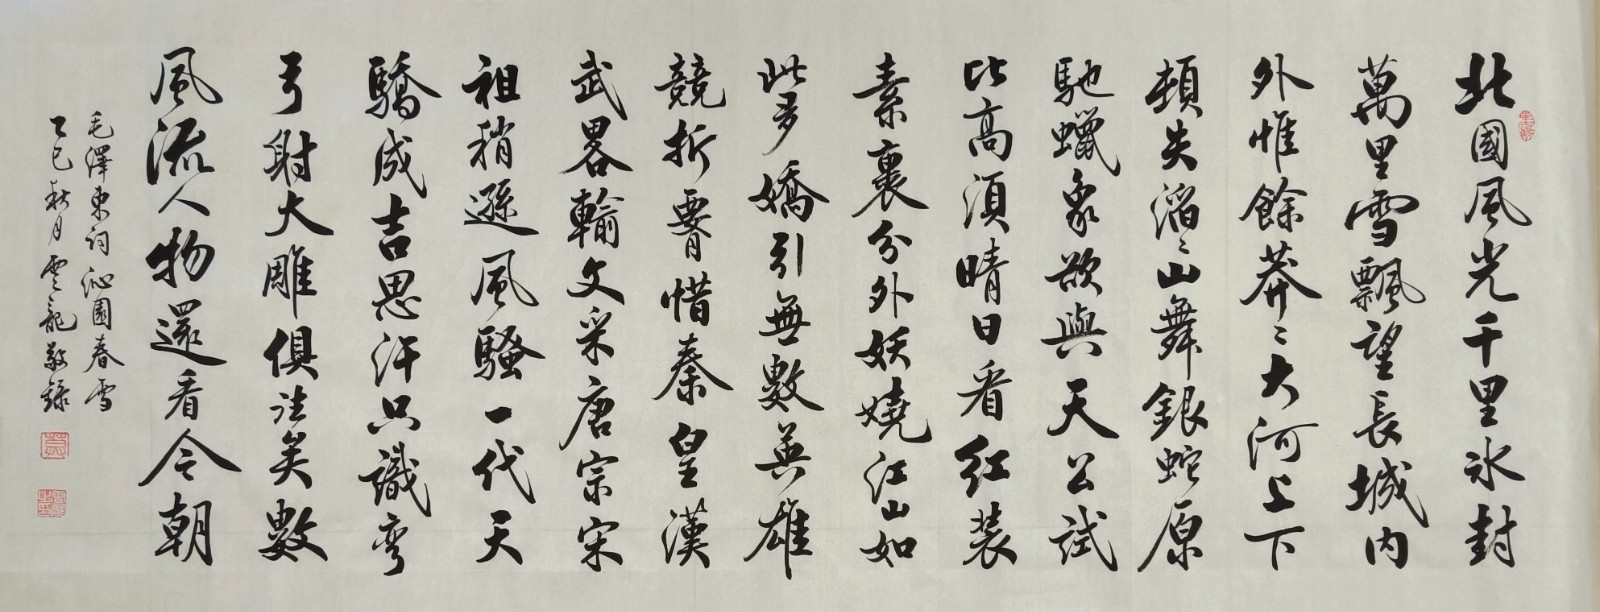 北國風光千里氷封
萬里雪飄望長城内
外惟餘莽〻大河上下
頓失滔〻山舞銀蛇原
馳蠟象欲與天公試
比高須晴日看紅装
素裹分外妖嬈江山如
此多嬌引無數英雄
競折腰惜秦皇漢
武畧輸文采唐宗宋
祖稍遜風騷一代天
驕成吉思汗只識彎
弓射大雕俱往矣數
風流人物還看今朝
毛澤東詞沁園春雪
乙巳秋月雲龍敬錄